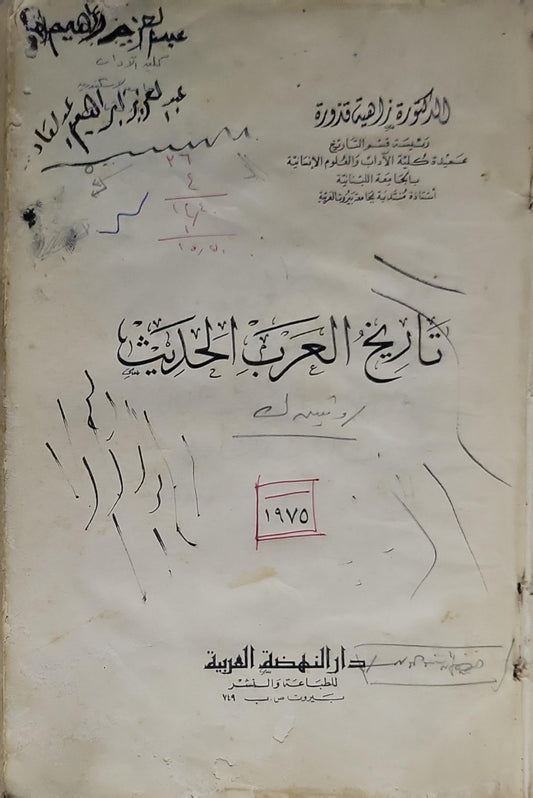 عبد العزيز إبراهيم
كلية الآداب
عبد العزيز إبراهيم
٢٦
٤
الدكتورة زاهية قدورة
رئيسة قسم التاريخ
عميدة كلية الآداب والعلوم الإنسانية
بالجامعة اللبنانية
أستاذة منتدبة بجامعة بيروت العربية
تاريخ العرب الحديث
١٩٧٥
دار النهضة العربية
للطباعة والنشر
بيروت ص.ب ٧٤٩